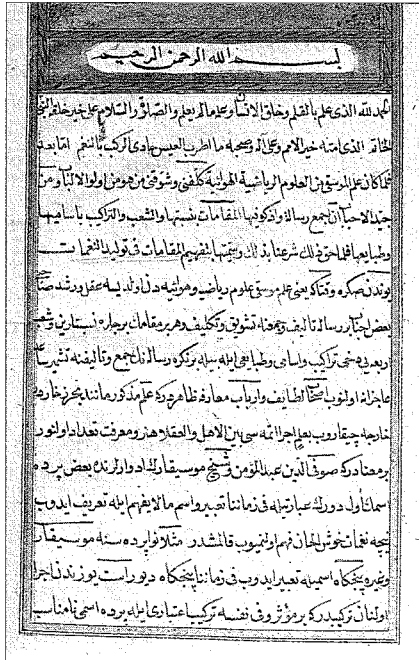 بسم الله الرحمن الرحيم
الحمد لله الذى علم بالقلم وخلق الانسان وعلم ما لم يعلم والصلاة والسلام على خير خلقه
امته خير الامم وعلى آله وصحبه ما اطرب العيس حادى الركب بالنغم اما بعد
فلما كان علم الموسقى من العلوم الرياضية الهوائية كلفنى وشوقنى من هو من اولو الالباب ومن
الاحباب ان اجمع رسالة واذكر فيها المقامات نسبتها والشعب والتراكيب باساميها
وطبايعها فلما حق ذلك شرعنا بذلك وسميتها بتفهيم المقامات فى توليد النغمات
بوندن صكره يعنى علم موسقى علوم رياضى وهوائيه دن اولديسه عقل ورشد صاحبى
بعض احباب بر رسالة تاليف وجمعنه تشويق وتكليف وهر بر مقامك
تراكيب واسامى وطبايعى ايله بيله رسالة جمع وتاليفنه
عاجزانه اولنوب لطايف وارباب معارفه ظاهردركه علم مذكور مانند بحر زخاردن
خارجه چيقاروب اجرا اتمه سى بين الاهل والعقلا هنر ومعرفت تعداد اولنور
بر معنادركه صوفى الدين عبد المؤمن وشيخ موسيقار ادوارلرنده بعض پرده
اسمك اول دورك عبارتيله فى زماننا تعبير واسم ما لا يفهم ايله تعريف ايدوب
نيچه نغمات خوش الحان فهم اولنميوب قالمشدر مثلا نوا پرده سنه موسيقار
وغيره پنجكاه اسميله تعبير ايدوب فى زماننا پنجكاه ديو راست يوزندن اجرا
اولنان تركيبدركه بر مؤثر وفى نفسه تركيب اعتبارى ايله پرده اسمى نامناسب